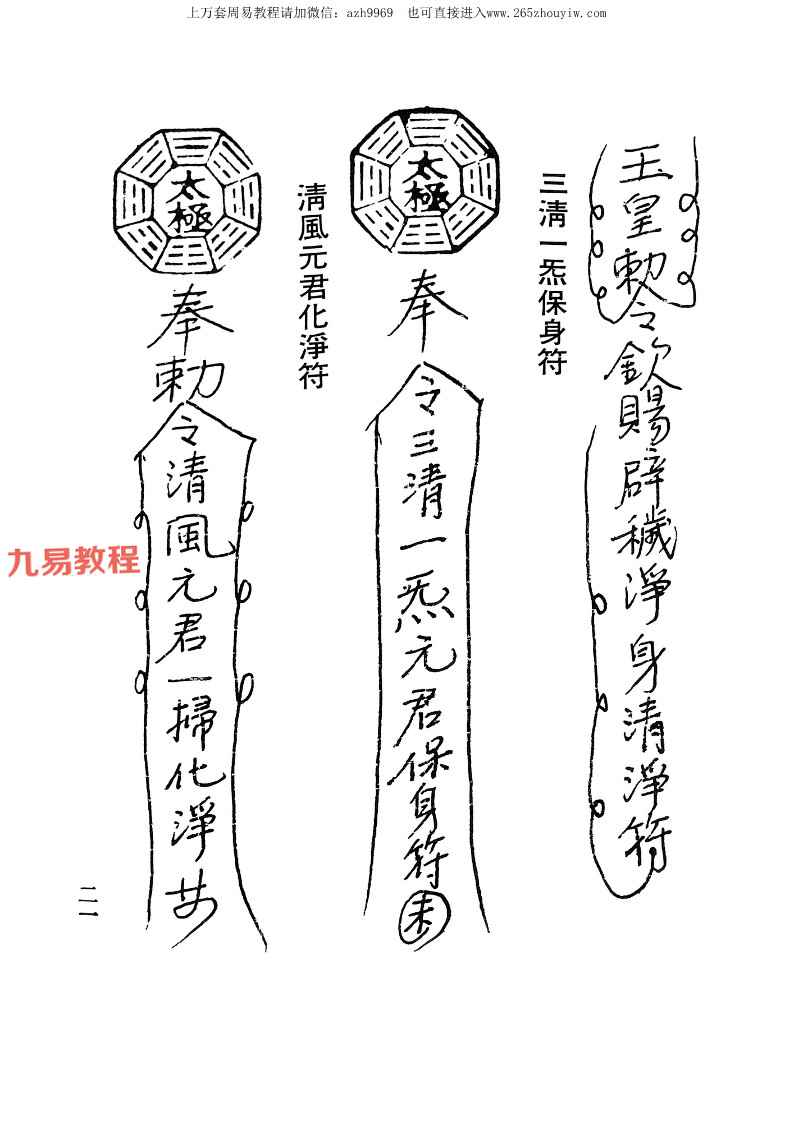 上万套周易教程请加微信：azh9969 也可直接进入www.265zhouyiw.com
玉皇勅令欽賜辟穢淨身清淨符
三淸一炁保身符
太極
奉
令三清一炁元君保身符
淸風元君化淨符
太極
奉勅
令清風元君一掃化淨
九易教程
二一